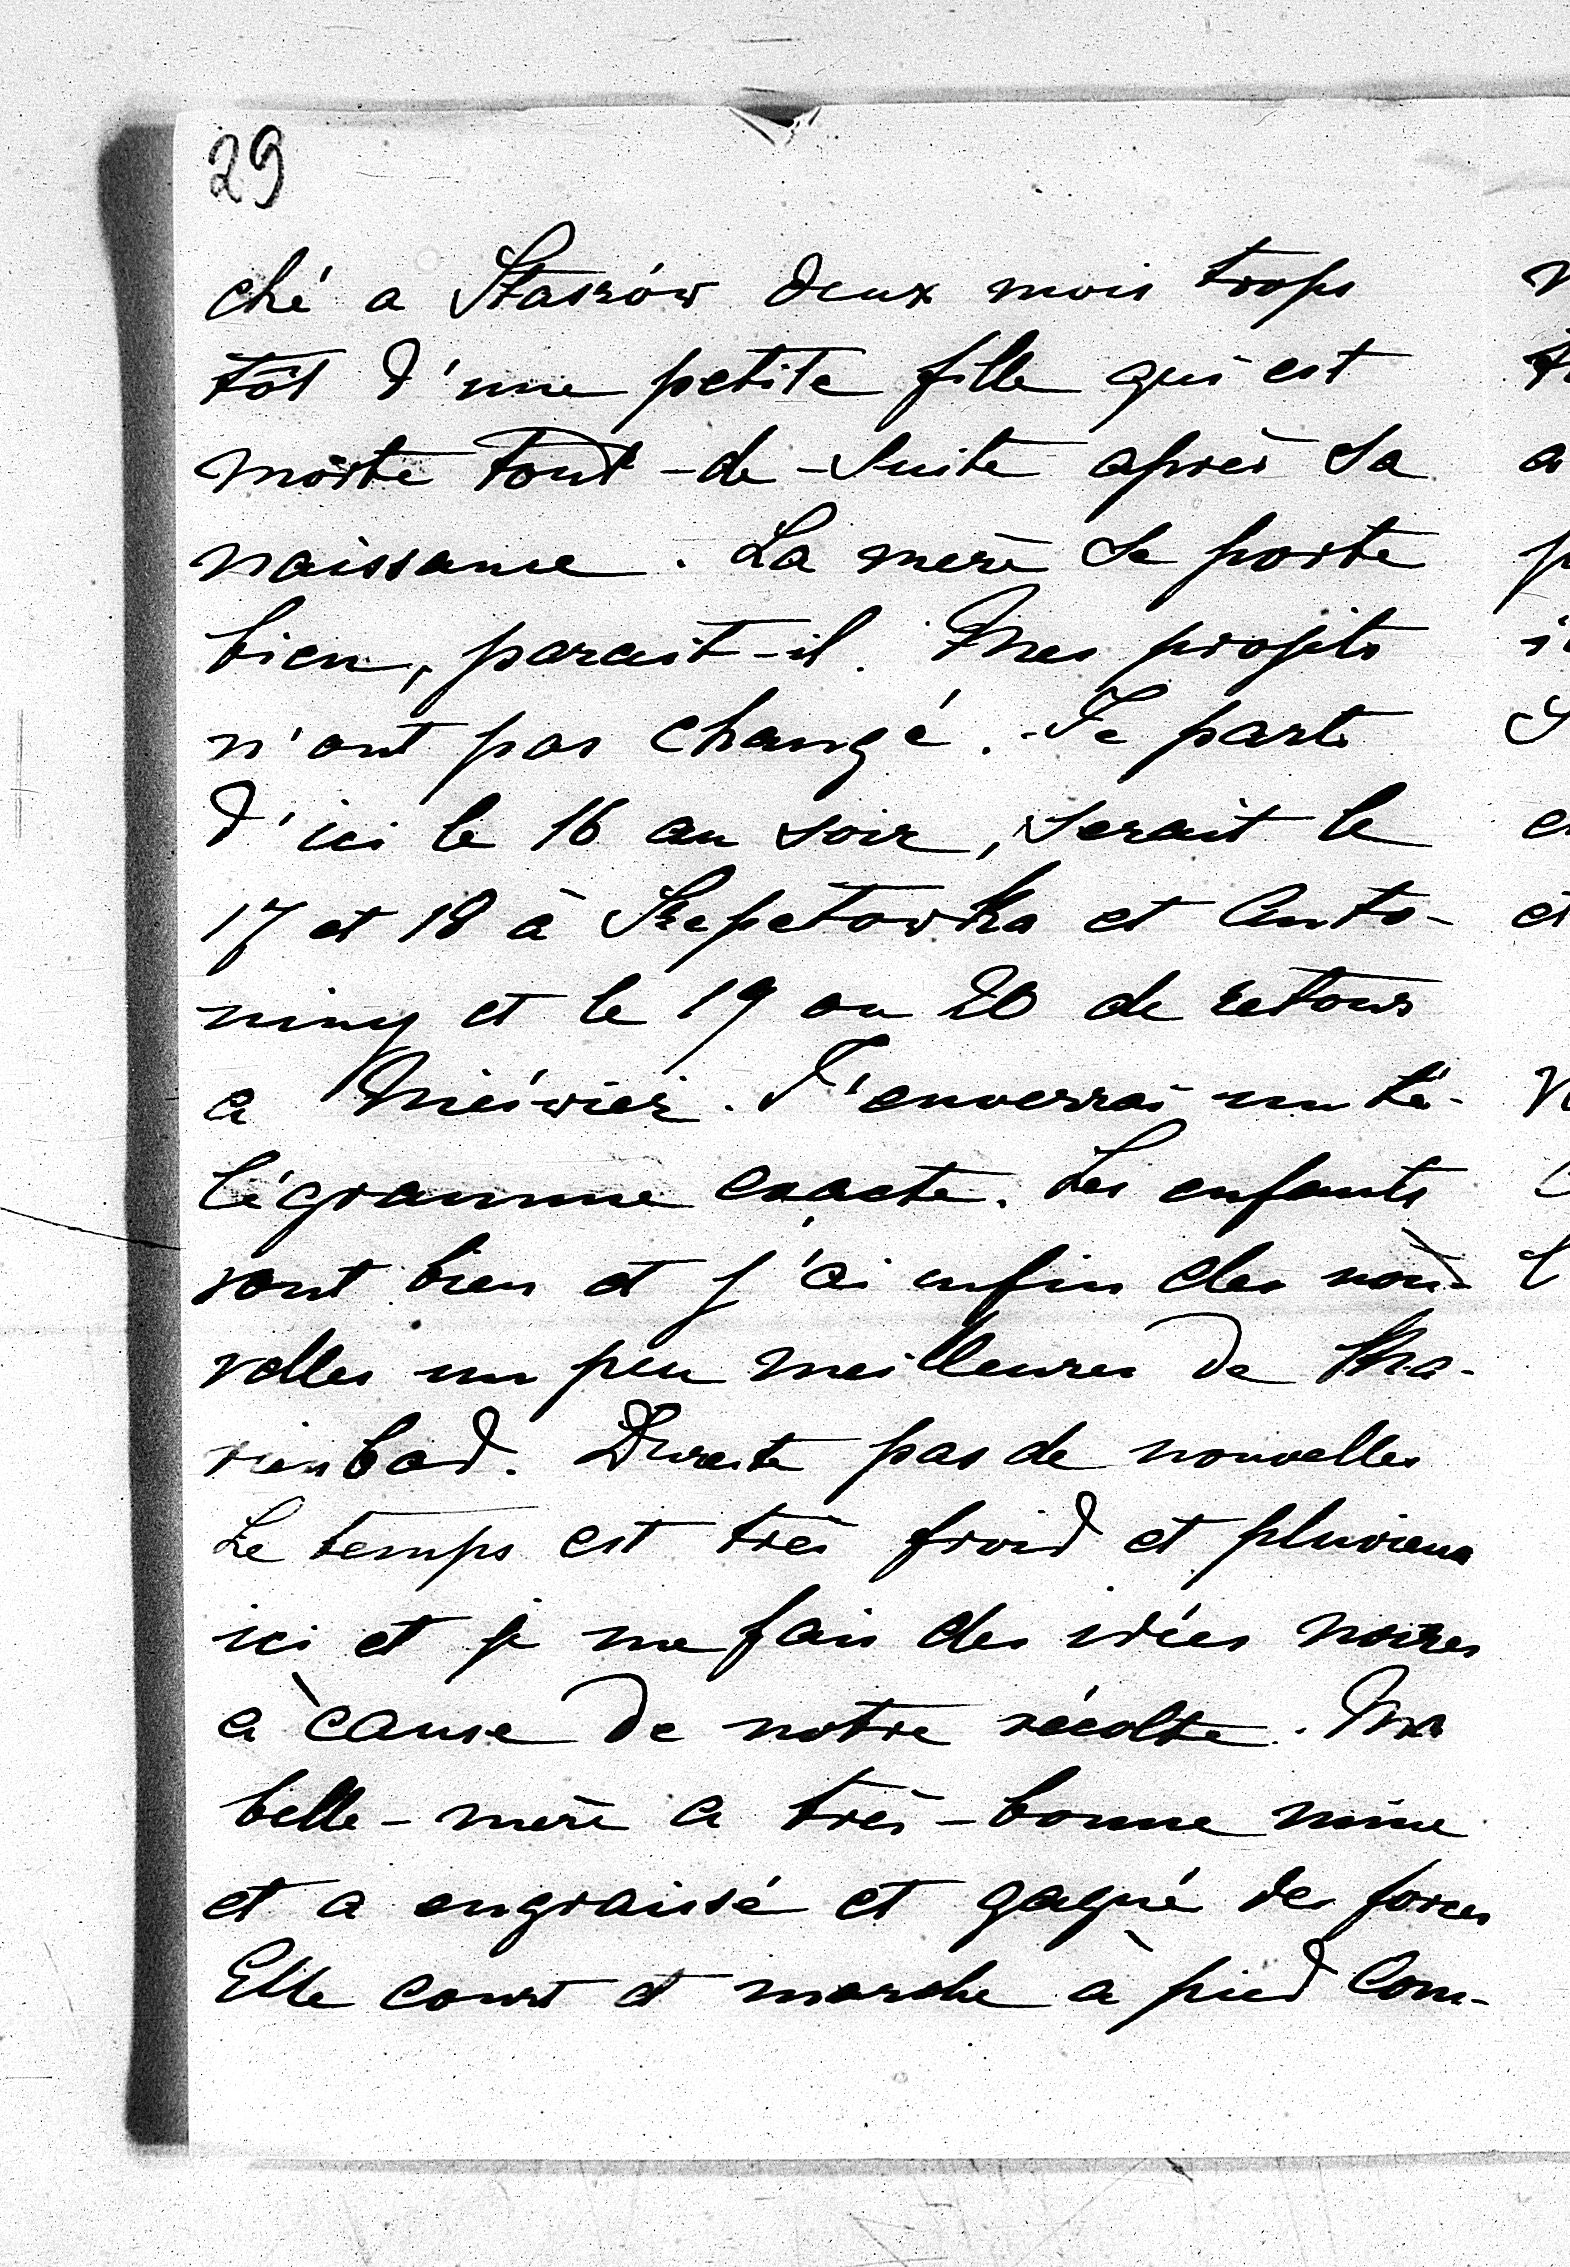 29
ché a Staszów deux mois trops
tôt d'une petite fille qui est
morte tout-de-suite après sa
naissance. La mère se porte
bien, parait-il. Mes projets
n'ont pas changé. Je parts
d'ici le 16 au soir, serait le
17 et 18 à Szepetowka et Anto-
niny et le 19 ou 20 de retour
a Nieśwież. J'enverrai un té-
légramme exacte. Les enfants
vont bien et j'ai enfin des nou-
velles un peu meilleures de Ma-
rienbad. Dureste pas de nouvelles
Le temps est très froid et pluvieux
ici et je me fais des idées noires
à cause de notre récolte. Ma
belle-mère a très-bonne mine
et a engraissé et gagné des forces
Elle court et marche à pied com-